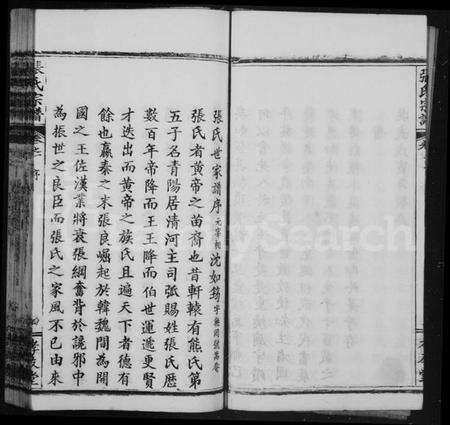 張氏世家譜序元宰相沈如筠字無同號萬卷
張氏者黃帝之苗裔也昔軒轅有熊氏第
五子名青陽居清河主司弧賜姓張氏歷
數百年帝降而王王降而伯世運遞更賢
才迭出而黃帝之族氏且遍天下者德有
餘也嬴秦之末張良崛起於韓魏間為開
國之王佐漢業將衰張綱奮背於讒邪中
為振世之良臣而張氏之家風不已由來
張氏宗譜
序
孝友堂
張氏宗譜
孝友堂